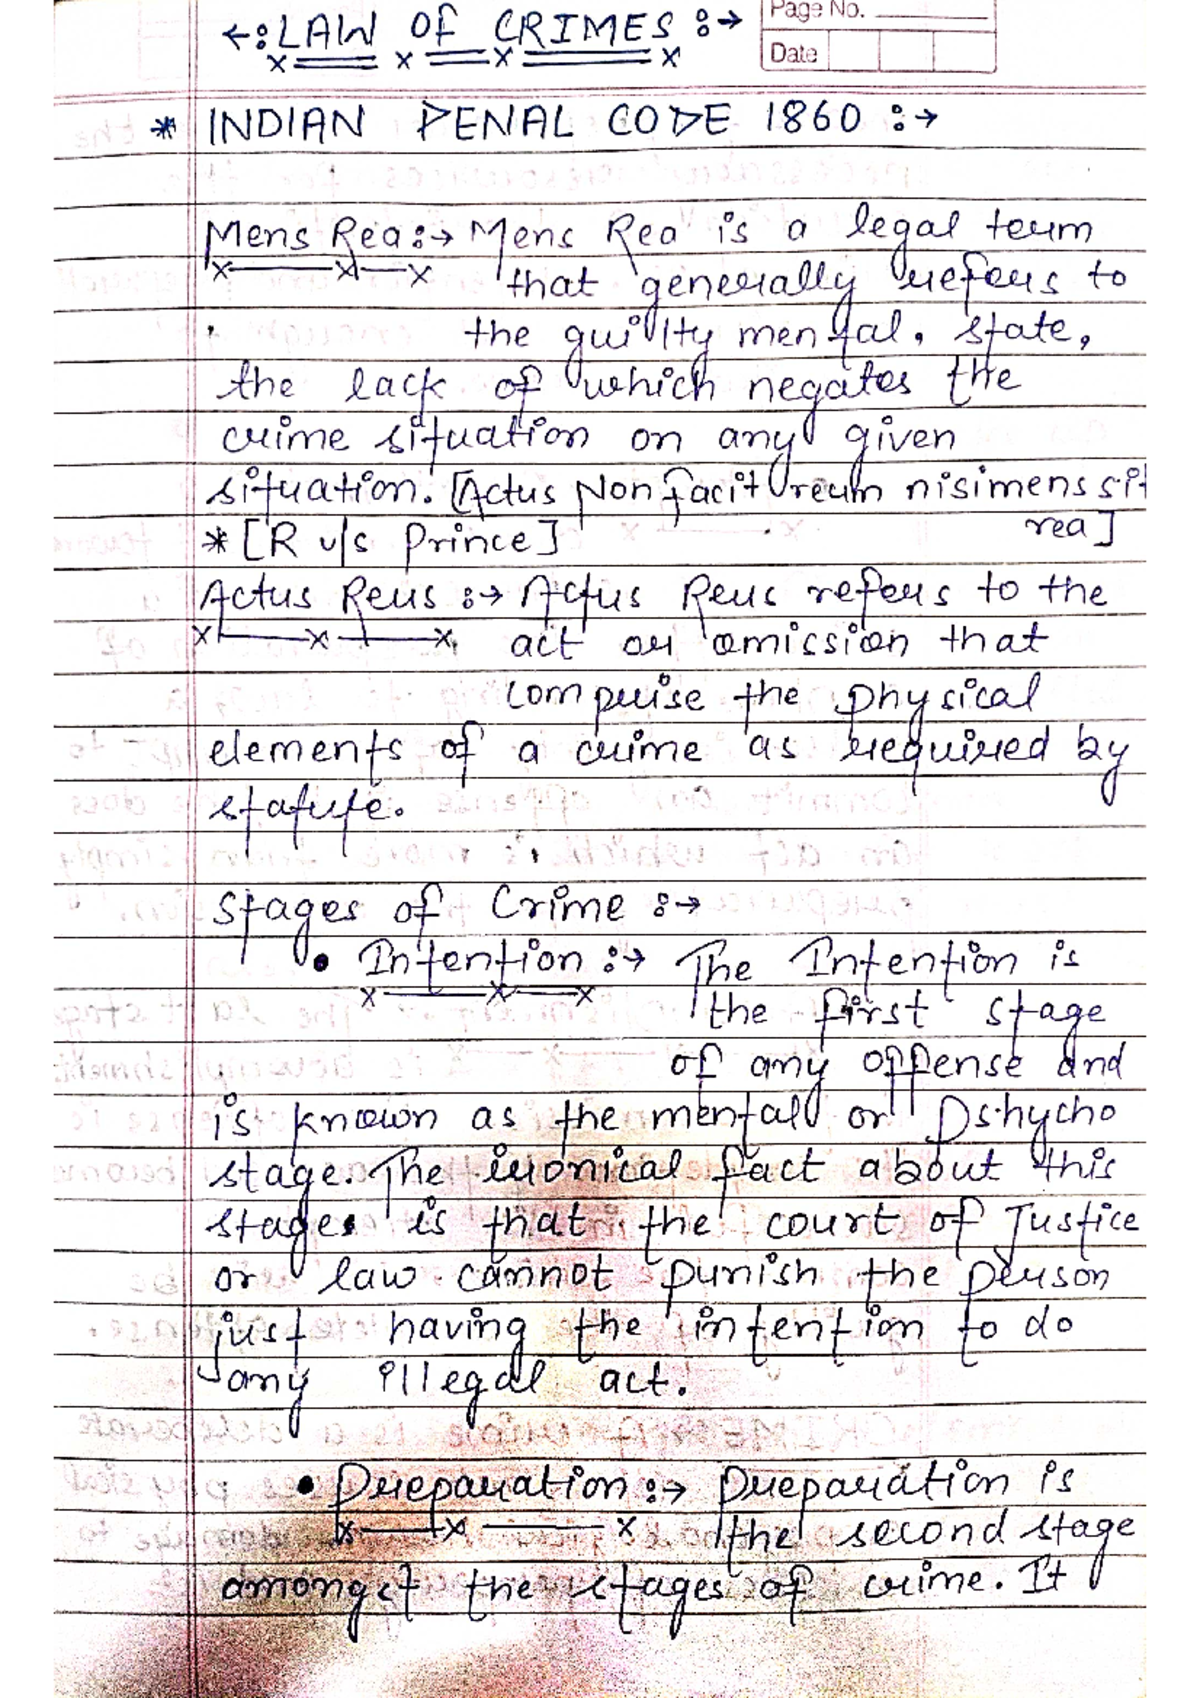 ←:LAW OF CRIMES :→
Page No.
Date
* INDIAN PENAL CODE 1860 :→
Mens Rea:→ Mens Rea is a legal term
that generally refers to
the guilty mental, state,
the lack of which negates the
crime situation on any given
situation. [Actus Non facit reum nisimens sit
rea]
* [R v/s Prince]
Actus Reus :→ Actus Reus refers to the
act or omission that
comprise the physical
elements of a crime as required by
statute.
Stages of Crime :→
• Intention :→ The Intention is
the first stage
of any offense and
is known as the mental or Pshycho
stage. The ironical fact about this
stage is that the court of Justice
or law cannot punish the person
just having the intention to do
any illegal act.
• Preparation :→ Preparation is
the second stage
amongst the stages of crime. It